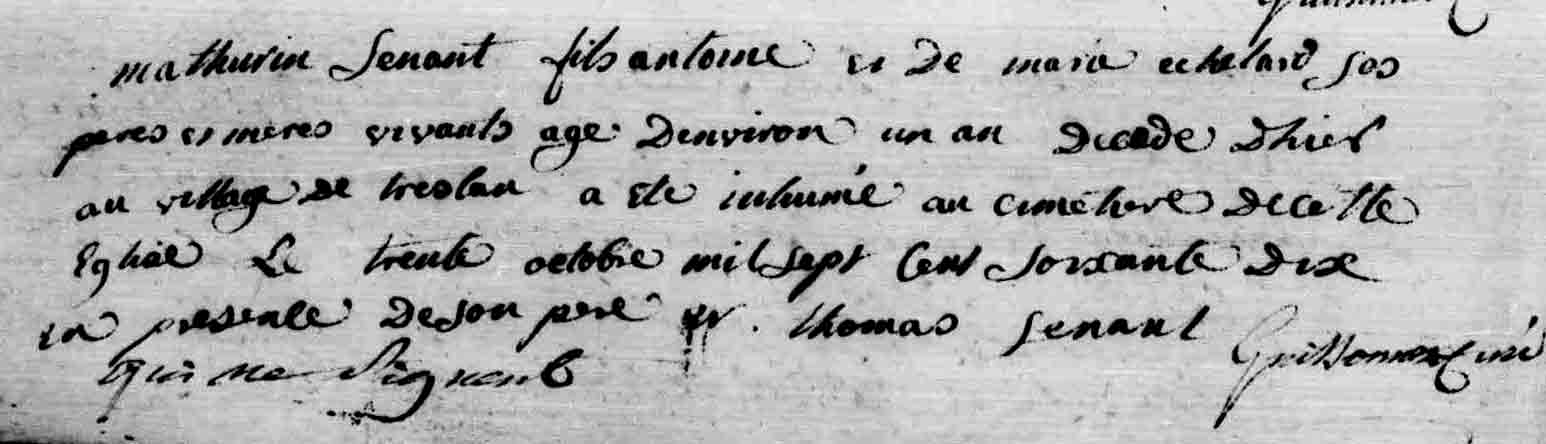 mathurin Senant fils antoine et De marie echelard ses
peres et meres vivants age D'environ un an Decede D'hier
au village de treolan a Ete inhumé au cimetiere De cette
Eglise Le trente octobre mil sept Cent soixante Dix
en presence De son pere et thomas senant
qui ne signent Guillomet Curé